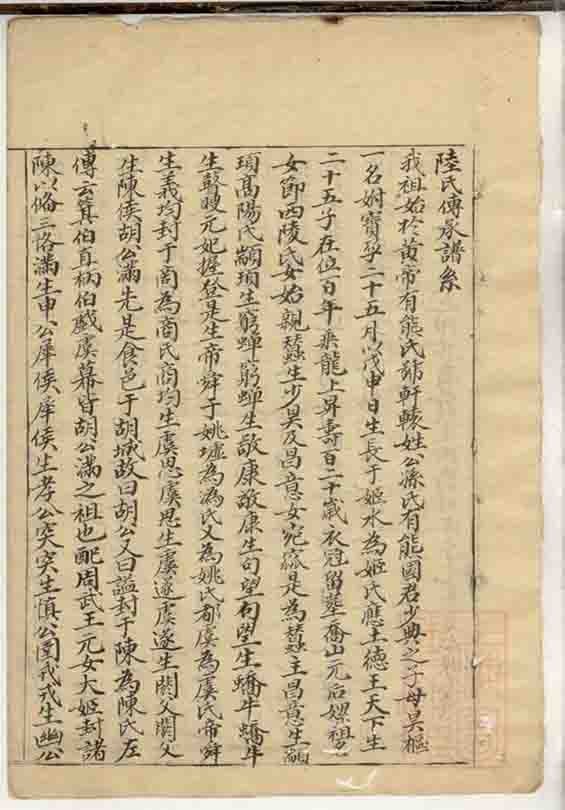 陸氏傳承譜系
我祖始於黄帝有熊氏號軒轅姓公孫氏有熊國君少典之子母昊樞
一名附寶孕二十五月以戊申日生長于姬水為姬氏應土德王天下生
二十五子在位百年乘龍上昇壽百二十歲衣冠葬喬山元后嫘祖
女節西陵氏女始親蠶生少昊及昌意女宛窳是為蠶主昌意生顓
頊髙陽氏顓頊生窮蟬窮蟬生敬康敬康生句望句望生蟜牛蟜牛
生瞽瞍元妃握登是生帝舜于姚墟為媯氏又為姚氏都虞為虞氏帝舜
生義均封于商為商氏商均生虞思虞思生虞遂虞遂生閼父閼父
生陳侯胡公滿先是食邑于胡城故曰胡公又曰謚封于陳為陳氏左
傳云箕伯直柄伯戲虞幕皆胡公滿之祖也配周武王元女大姬封諸
陳以備三恪滿生申公犀侯犀侯生孝公突突生慎公圉戎戎生幽公